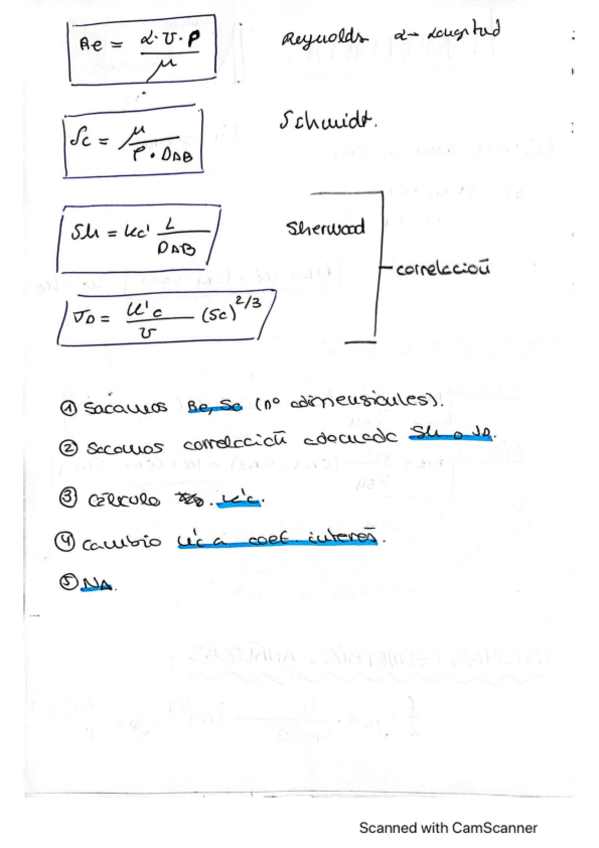 Re = α·v·ρ / μ    Reynolds α → Longitud
Sc = μ / ρ·DAB    Schmidt.
Sh = kc' L / DAB    Sherwood
correlación
JD = k'c / v (Sc)^2/3
① Sacamos Re, Sc (nº adimensionales).
② Sacamos correlación adecuada Sh o JD.
③ Cálculo k'c.
④ Cambio k'c a coef. interés.
⑤ NA.
Scanned with CamScanner